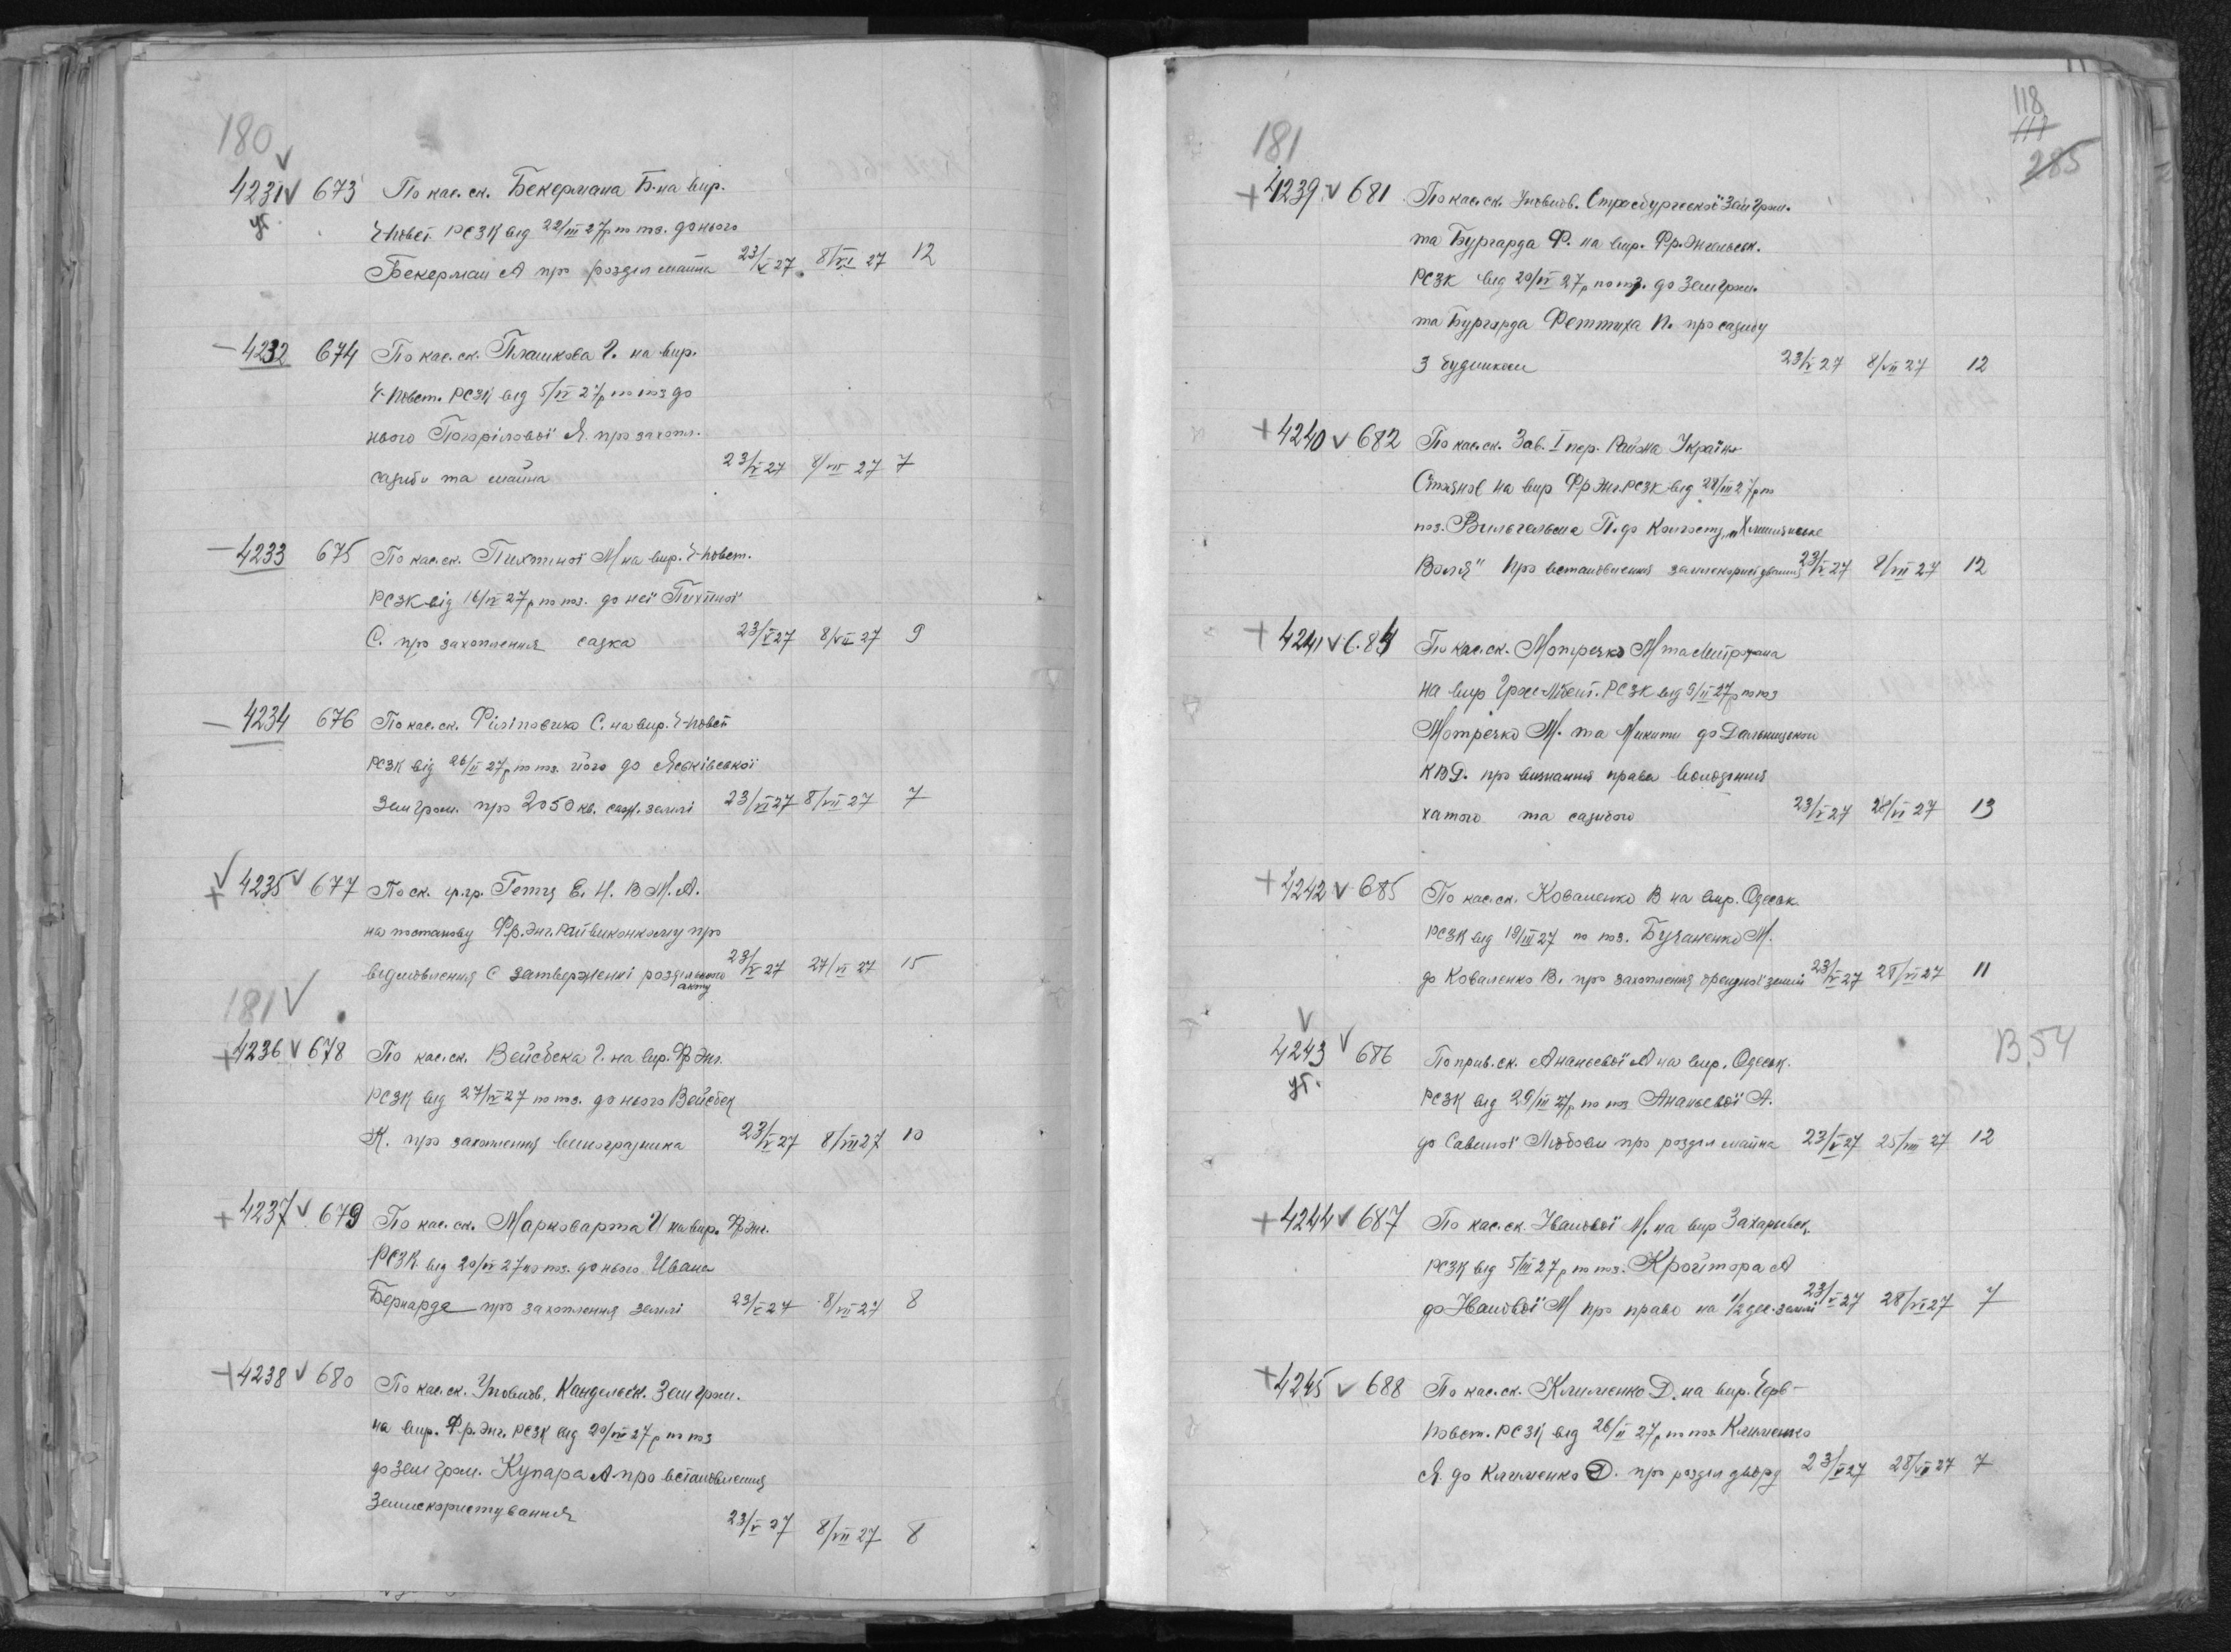 180
4231 673 По кас. ск. Бекермана Б. на вир.
Ч-повст. РСЗК від 22/III 27 р по поз. до нього
Бекерман А про розділ майна 23/V 27 8/VI 27 12
ут.
4232 674 По кас. ск. Плашкова Г. на вир.
Ч-повст. РСЗК від 5/IV 27 р по поз до
нього Погорілової Я. про захопл.
садиби та майна 23/V 27 8/VII 27 7
4233 675 По кас. ск. Пихтіної М на вир. Ч-повст.
РСЗК від 16/IV 27 р по поз. до неї Пихтіної
С. про захоплення садка 23/V 27 8/VII 27 9
4234 676 По кас. ск. Філіповича С. на вир. Ч-повст
РСЗК від 26/II 27 р по поз. його до Яськівської
Зем гром. про 2050 кв. саж. землі 23/VI 27 8/VII 27 7
4235 677 По ск. гр.гр. Гетц Е. Н. В М. А.
на постанову Фр. Энг. Райвиконкому про
відмовлення в затвержені роздільного 23/V 27 27/VI 27 15
акту
181
4236 678 По кас. ск. Вейсбека Г. на вир. Ф Энг.
РСЗК від 27/IV 27 по поз. до нього Вейсбек
К. про захоплення виноградника 23/V 27 8/VII 27 10
4237 679 По кас. ск. Марковарта И на вир. Ф Энг.
РСЗК від 20/IV 27 по поз. до нього Ивана
Бернарда про захоплення землі 23/V 27 8/VII 27 8
4238 680 По кас. ск. Уповнов. Кандельск. Зем гром.
на вир. Фр. Энг. РСЗК від 20/IV 27 р по поз
до Зем гром. Купара А про встановлення
Землекористування 23/V 27 8/VII 27 8
118
117
285
181
4239 681 По кас. ск. Уповнов. Страсбургської Зем гром.
та Бургарда Ф. на вир. Фр. Энгельськ.
РСЗК від 20/IV 27 р по поз. до Зем гром.
та Бургарда Феттиха П. про садибу
З будинком 23/V 27 8/VII 27 12
4240 682 По кас. ск. Зав. I пер. Району Україн
на вир Фр Энг. РСЗК від 28/III 27 р по
поз. Вильгельма П. до Колгоспу
Воля" про встановлення землекористування 23/V 27 8/VII 27 12
4241 684 По кас. ск. Мотречко М та Митрофана
на вир Грос-Лібент. РСЗК від 9/II 27 р по поз
Мотречко М. та Микити до Дальницької
КВД. про визнання права володіння
хатою та садибою 23/V 27 28/VI 27 13
4242 685 По кас. ск. Коваленко В на вир. Одеськ.
РСЗК від 19/III 27 по поз. Бучаненко М.
до Коваленко В. про захоплення орендної землі 23/V 27 28/VI 27 11
4243 686 По прив. ск. Ананьєвої А на вир. Одеськ. В.54
РСЗК від 29/III 27 р по поз Ананьєвої А.
до Савиної Любови про розділ майна 23/V 27 25/VIII 27 12
ут.
4244 687 По кас. ск. Іванової М. на вир Захарьевск.
РСЗК від 5/III 27 р по поз. Кройтора А
до Іванової М про право на 1/2 дес. землі 23/V 27 28/VI 27 7
4245 688 По кас. ск. Клименко Д. на вир. Черв-
повст. РСЗК від 26/II 27 р по поз. Клименко
Я. до Клименко Д. про розділ двору 23/V 27 28/VI 27 7